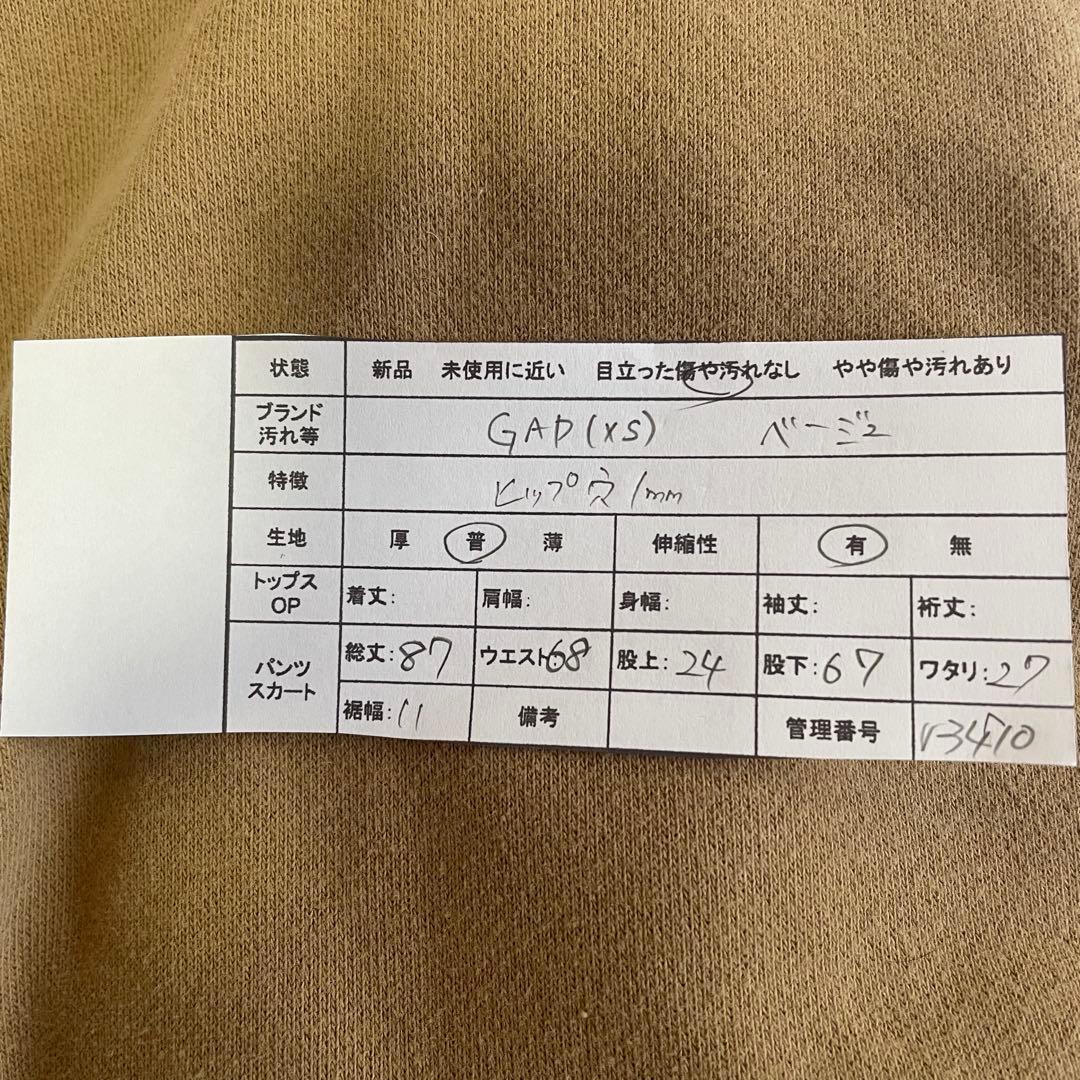 状態 新品 未使用に近い 目立った傷や汚れなし やや傷や汚れあり
ブランド
汚れ等 GAP (XS) ベージュ
特徴 ヒップ穴 1mm
生地 厚 普 薄 伸縮性 有 無
トップス
OP 着丈: 肩幅: 身幅: 袖丈: 裄丈:
パンツ
スカート 総丈:87 ウエスト:68 股上:24 股下:67 ワタリ:27
裾幅:11 備考 管理番号